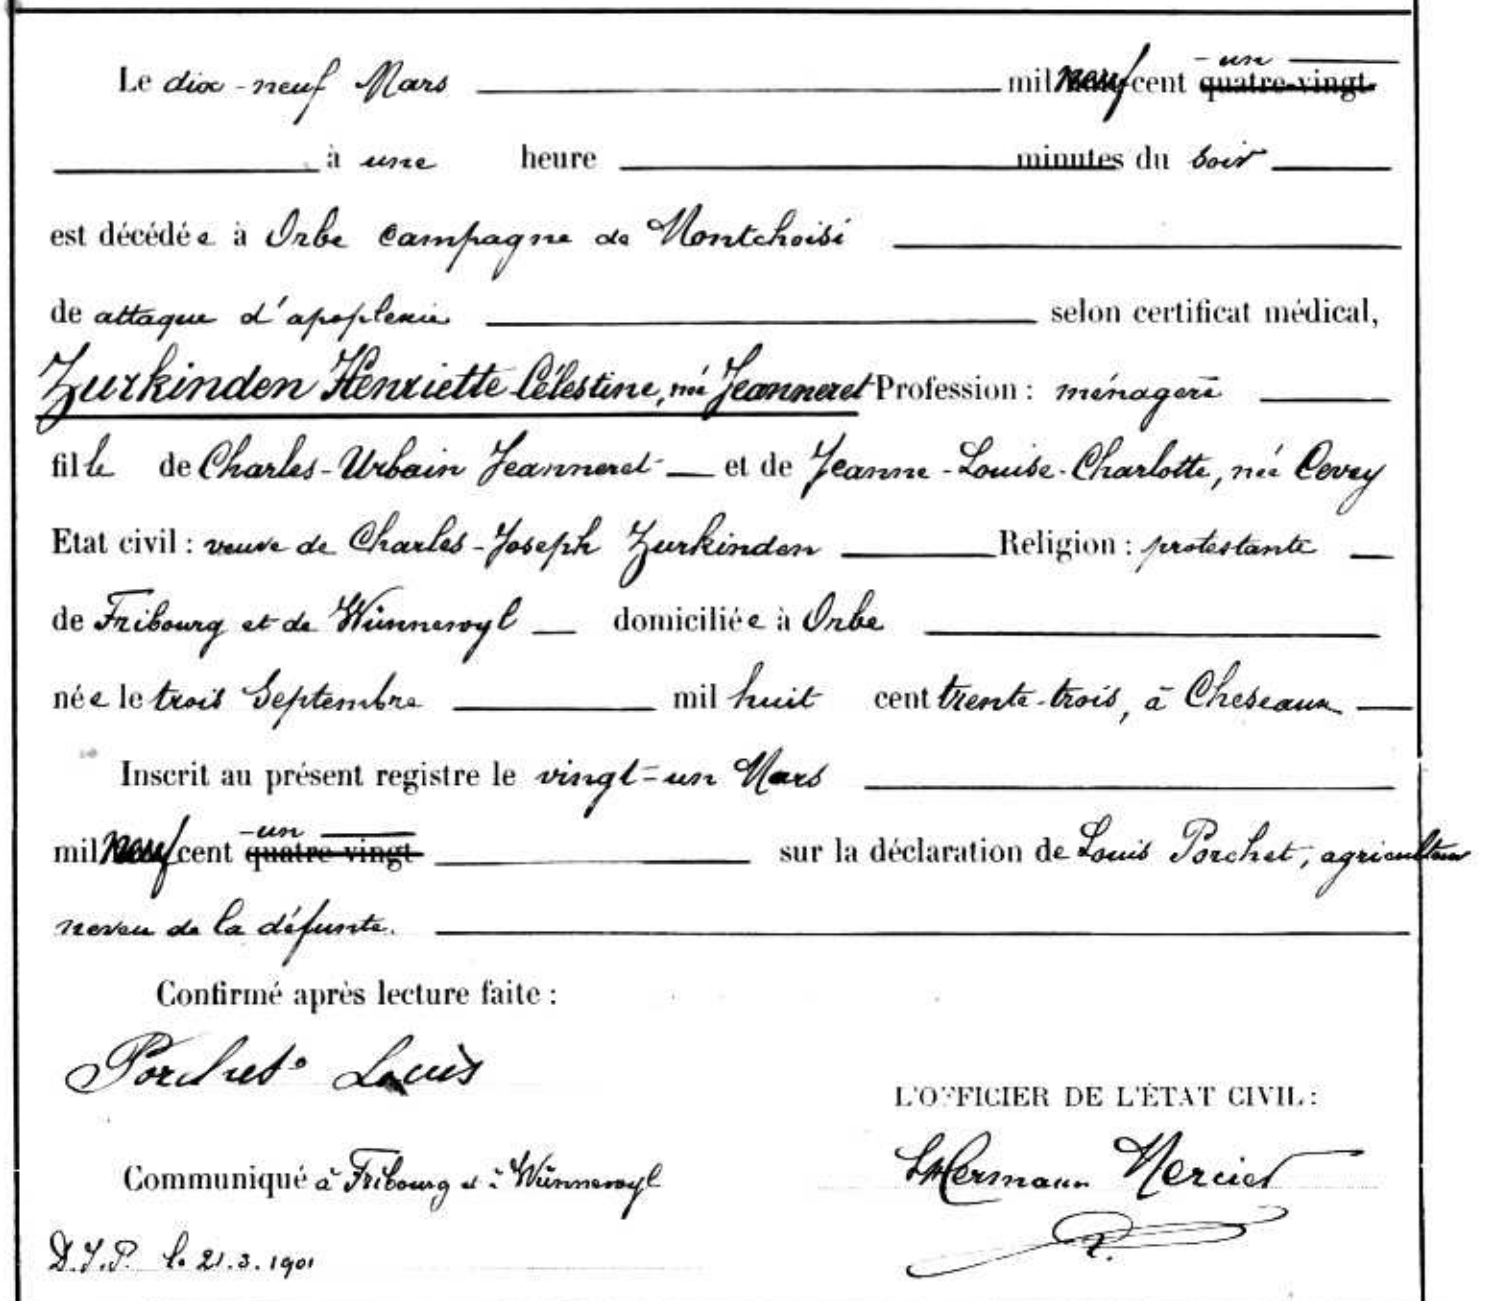 Le dix-neuf Mars mil neuf cent quatre-vingt -un
à une heure minutes du soir
est décédée à Orbe campagne de Montchoisi
de attaque d'apoplexie selon certificat médical,
Zurkinden Henriette Célestine, née Jeanneret Profession : ménagère
fille de Charles-Urbain Jeanneret et de Jeanne-Louise-Charlotte, née Cevey
Etat civil : veuve de Charles-Joseph Zurkinden Religion : protestante
de Fribourg et de Wünnewyl domiciliée à Orbe
née le trois Septembre mil huit cent trente-trois, à Cheseaux
Inscrit au présent registre le vingt-un Mars
mil neuf cent quatre-vingt -un sur la déclaration de Louis Porchet, agriculteur
neveu de la défunte.
Confirmé après lecture faite :
Porchet Louis
L'OFFICIER DE L'ÉTAT CIVIL :
Communiqué à Fribourg et à Wünnewyl
Hermann Mercier
le 21.3.1901